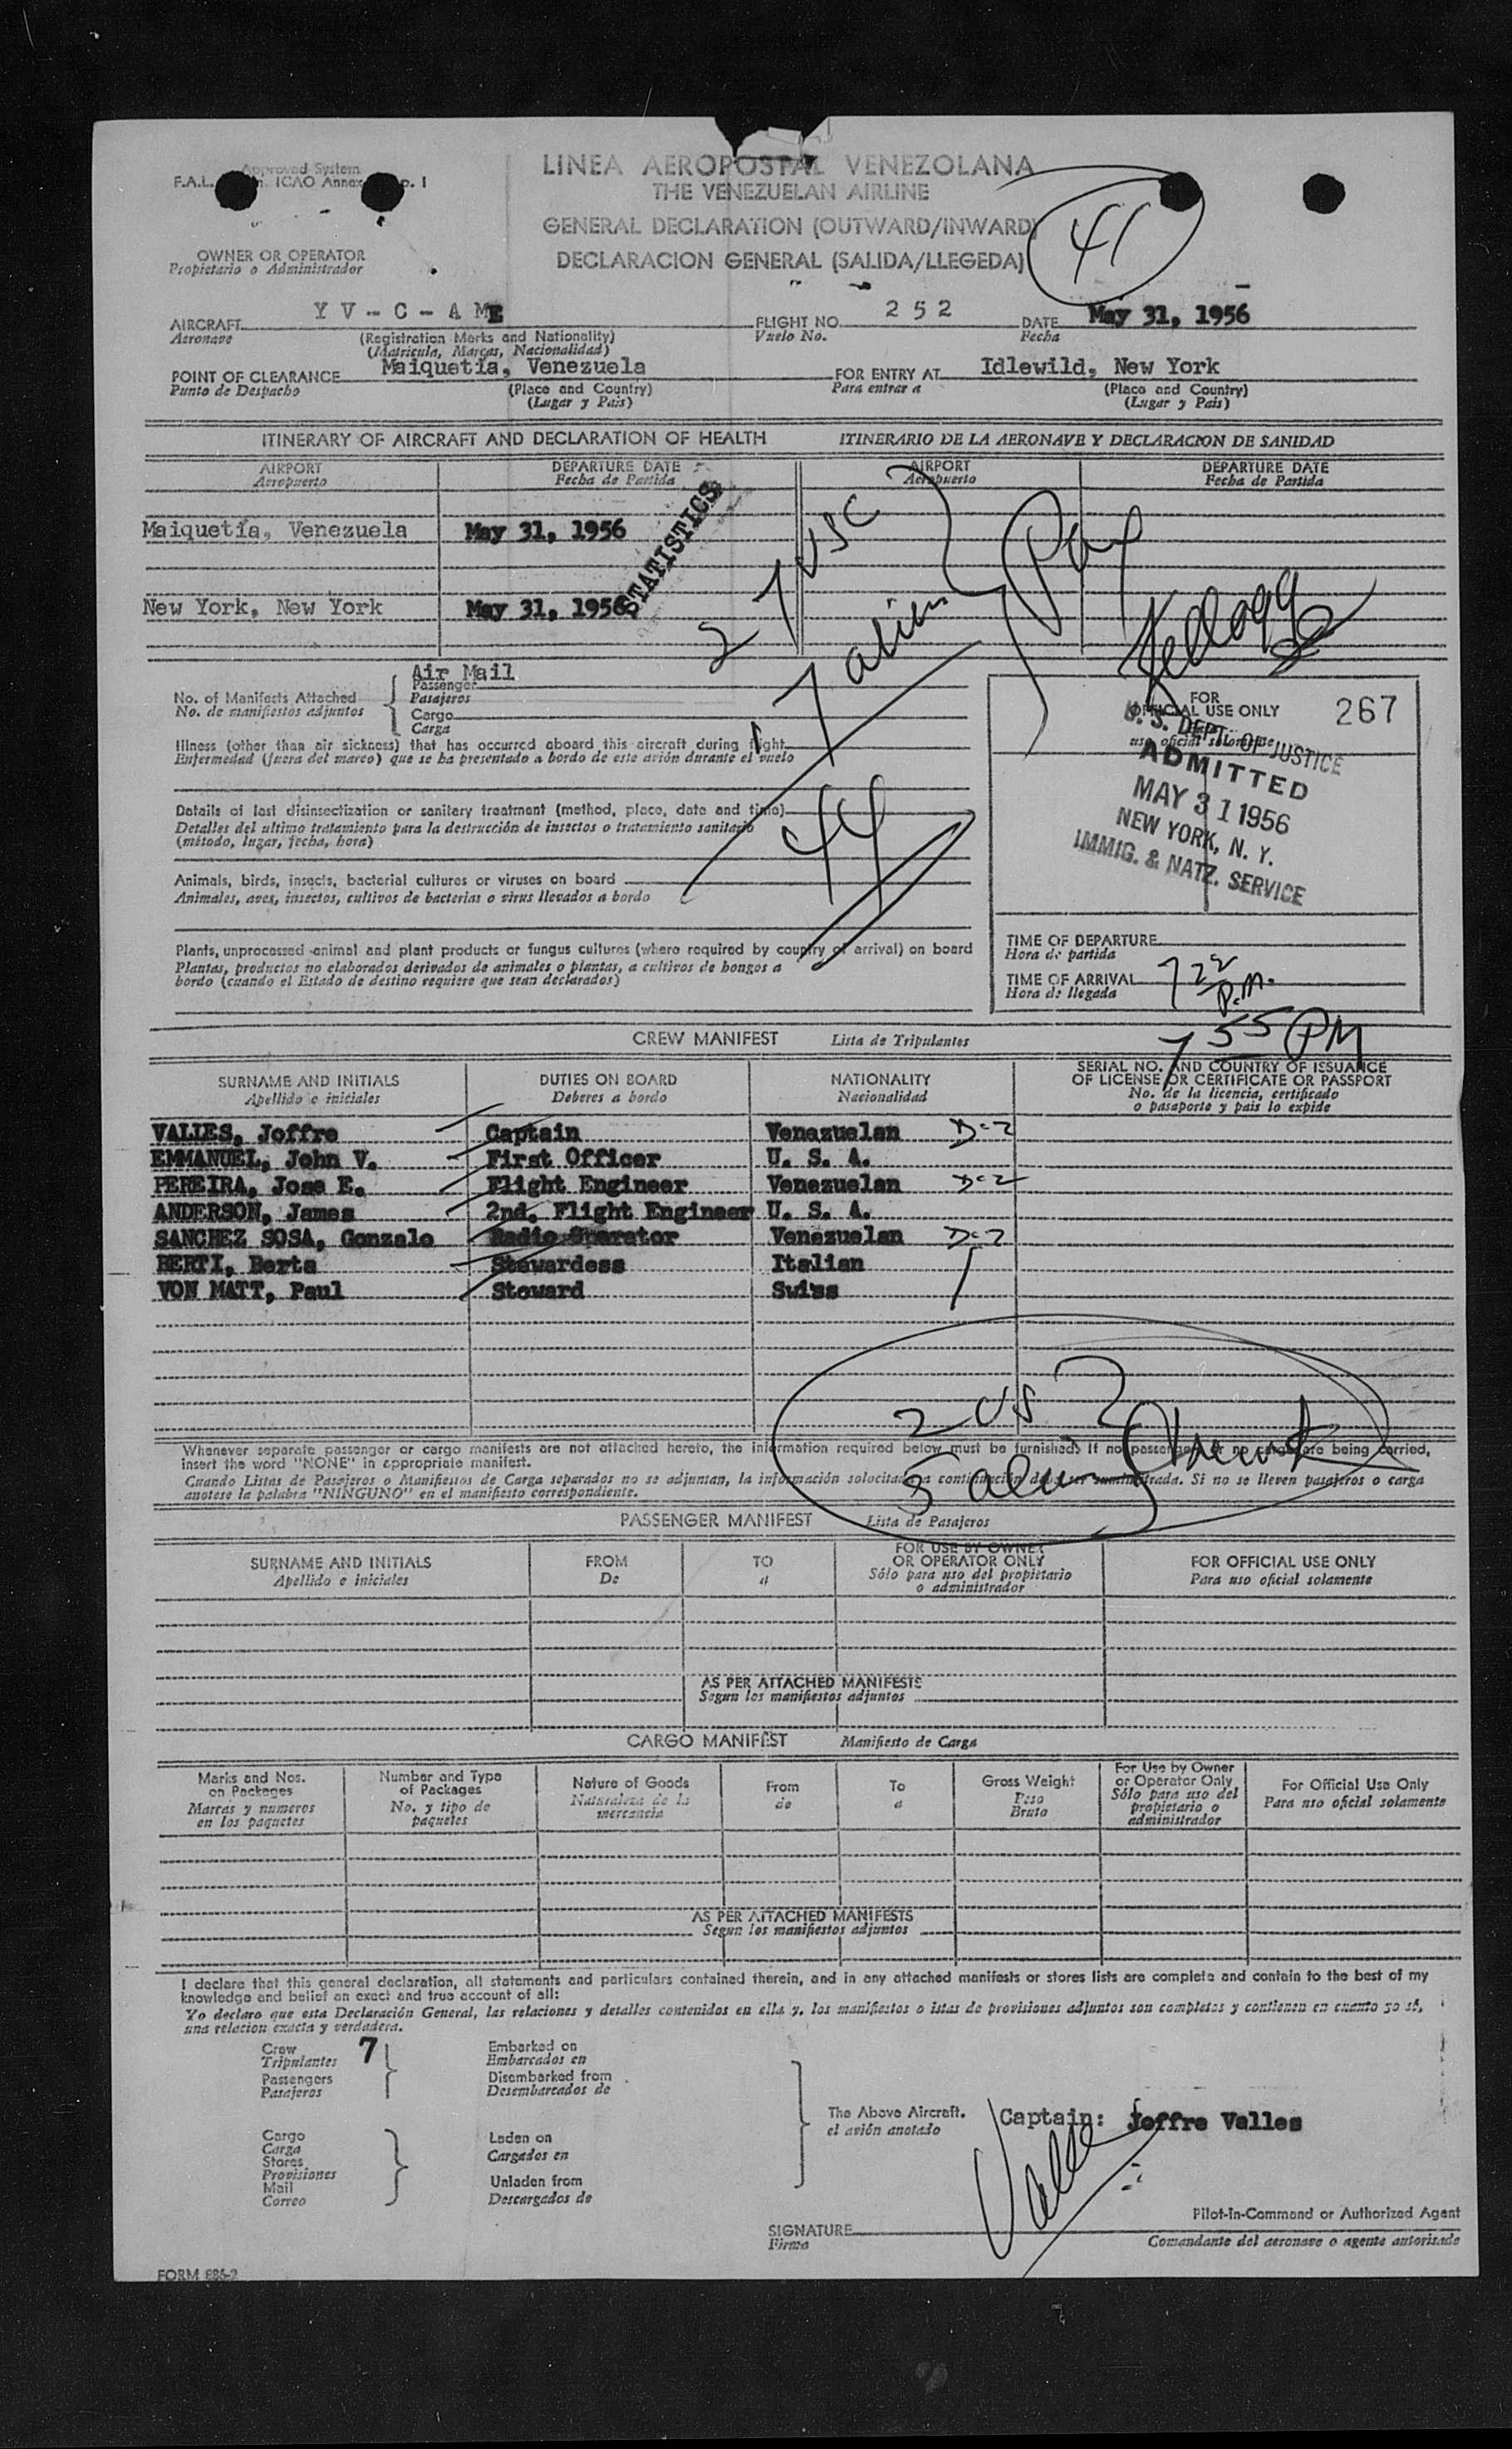 Approved System
F.A.L. ICAO Annex p. 1
LINEA AEROPOSTAL VENEZOLANA
THE VENEZUELAN AIRLINE
GENERAL DECLARATION (OUTWARD/INWARD)
DECLARACION GENERAL (SALIDA/LLEGEDA)
41
OWNER OR OPERATOR
Propietario o Administrador
AIRCRAFT Y V - C - A M E FLIGHT NO. 2 5 2 DATE May 31, 1956
Aeronave (Registration Marks and Nationality) Vuelo No. Fecha
(Matricula, Marcas, Nacionalidad)
POINT OF CLEARANCE Maiquetia, Venezuela FOR ENTRY AT Idlewild, New York
Punto de Despacho (Place and Country) Para entrar a (Place and Country)
(Lugar y Pais) (Lugar y Pais)
ITINERARY OF AIRCRAFT AND DECLARATION OF HEALTH ITINERARIO DE LA AERONAVE Y DECLARACION DE SANIDAD
AIRPORT DEPARTURE DATE AIRPORT DEPARTURE DATE
Aeropuerto Fecha de Partida Aeropuerto Fecha de Partida
STATISTICS
Maiquetia, Venezuela May 31, 1956
New York, New York May 31, 1956
27 USC
17 alien
Pax
44
Kellogg
Air Mail
No. of Manifests Attached Passenger
No. de manifiestos adjuntos Pasajeros
Cargo
Carga
Illness (other than air sickness) that has occurred aboard this aircraft during flight
Enfermedad (fuera del mareo) que se ha presentado a bordo de este avión durante el vuelo
Details of last disinsectization or sanitary treatment (method, place, date and time)
Detalles del ultimo tratamiento para la destrucción de insectos o tratamiento sanitario
(método, lugar, fecha, hora)
Animals, birds, insects, bacterial cultures or viruses on board
Animales, aves, insectos, cultivos de bacterias o virus llevados a bordo
Plants, unprocessed animal and plant products or fungus cultures (where required by country of arrival) on board
Plantas, productos no elaborados derivados de animales o plantas, a cultivos de hongos a
bordo (cuando el Estado de destino requiere que sean declarados)
FOR
OFFICIAL USE ONLY 267
uso oficial solamente
U. S. DEPT. OF JUSTICE
ADMITTED
MAY 31 1956
NEW YORK, N. Y.
IMMIG. & NATZ. SERVICE
TIME OF DEPARTURE
Hora de partida
TIME OF ARRIVAL 7 22 P.M.
Hora de llegada
7 55 PM
CREW MANIFEST Lista de Tripulantes
SURNAME AND INITIALS DUTIES ON BOARD NATIONALITY SERIAL NO. AND COUNTRY OF ISSUANCE
Apellido e iniciales Deberes a bordo Nacionalidad OF LICENSE OR CERTIFICATE OR PASSPORT
No. de la licencia, certificado
o pasaporte y pais lo expide
VALLES, Joffre Captain Venezuelan D-2
EMMANUEL, John V. First Officer U. S. A.
PEREIRA, Jose E. Flight Engineer Venezuelan D-2
ANDERSON, James 2nd. Flight Engineer U. S. A.
SANCHEZ SOSA, Gonzalo Radio Operator Venezuelan D-2
BERTI, Berta Stewardess Italian
VON MATT, Paul Steward Swiss
2 US
5 alien
Whenever separate passenger or cargo manifests are not attached hereto, the information required below must be furnished. If no passengers or no cargo are being carried,
insert the word "NONE" in appropriate manifest.
Cuando Listas de Pasajeros o Manifiestos de Carga separados no se adjuntan, la información solocitada a continuación debe ser suministrada. Si no se lleven pasajeros o carga
anotese la palabra "NINGUNO" en el manifiesto correspondiente.
PASSENGER MANIFEST Lista de Pasajeros
SURNAME AND INITIALS FROM TO FOR USE BY OWNER FOR OFFICIAL USE ONLY
Apellido e iniciales De a OR OPERATOR ONLY Para uso oficial solamente
Sólo para uso del propietario
o administrador
AS PER ATTACHED MANIFESTS
Segun los manifiestos adjuntos
CARGO MANIFEST Manifiesto de Carga
Marks and Nos. on Packages Number and Type of Packages Nature of Goods From To Gross Weight For Use by Owner or Operator Only For Official Use Only
Marcas y numeros en los paquetes No. y tipo de paquetes Naturaleza de la mercancia de a Peso Bruto Sólo para uso del propietario o administrador Para uso oficial solamente
AS PER ATTACHED MANIFESTS
Segun los manifiestos adjuntos
I declare that this general declaration, all statements and particulars contained therein, and in any attached manifests or stores lists are complete and contain to the best of my
knowledge and belief an exact and true account of all:
Yo declaro que esta Declaración General, las relaciones y detalles contenidos en ella y, los manifiestos o istas de provisiones adjuntos son completos y contienen en cuanto yo sé,
una relacion exacta y verdadera.
Crew 7 Embarked on
Tripulantes Embarcados en
Passengers Disembarked from
Pasajeros Desembarcados de
The Above Aircraft. Captain: Joffre Valles
el avión anotado
Valles
Cargo Laden on
Carga Cargados en
Stores
Provisiones
Mail Unladen from
Correo Descargados de
Pilot-in-Command or Authorized Agent
SIGNATURE
Firma Comandante del aeronave o agente autorisado
FORM 886-2